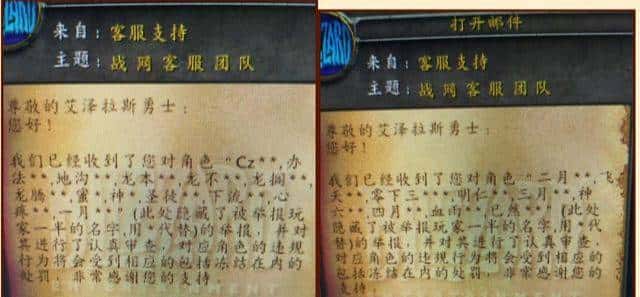 来自：客服支持
主题：战网客服团队
尊敬的艾泽拉斯勇士：
您好！
我们已经收到了您对角色“Cz**,办
法**,地沟**,龙本**,龙不**,龙搁**,
龙腾**,蜜**,神**,圣徒**,下流**,心
疼**,一月**”(此处隐藏了被举报玩
家一半的名字,用*代替)的举报，并对
其进行了认真审查，对应角色的违规
行为将会受到相应的包括冻结在内的
处罚，非常感谢您的支持
打开邮件
来自：客服支持
主题：战网客服团队
尊敬的艾泽拉斯勇士：
您好！
我们已经收到了您对角色“二月**,飞
天**,零下三***,明仁**,三月**,神
六**,四月**,血雨**,已然**”(此处
隐藏了被举报玩家一半的名字,用*代
替)的举报，并对其进行了认真审查，
对应角色的违规行为将会受到相应的
包括冻结在内的处罚，非常感谢您的
支持